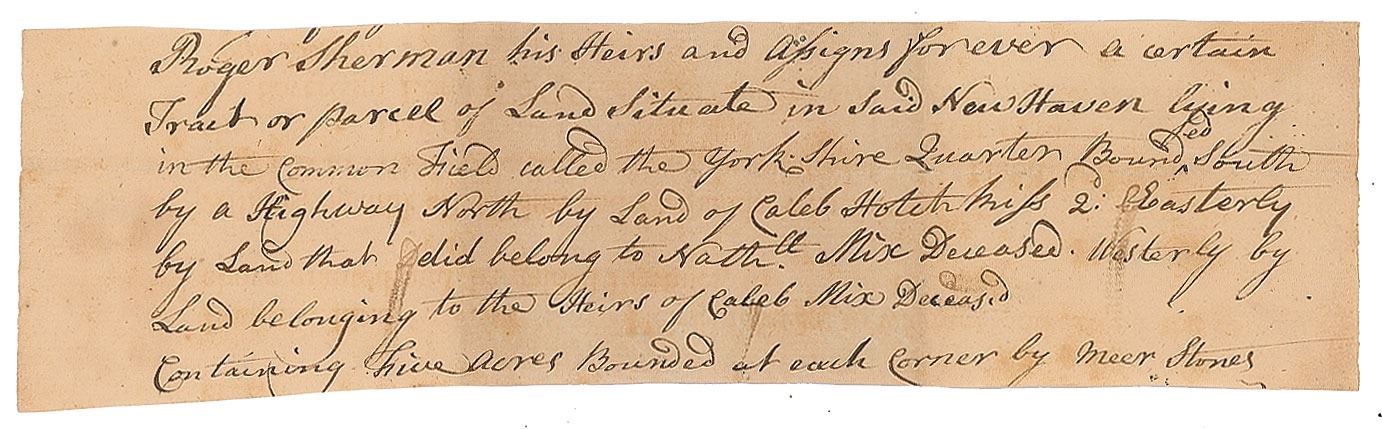 Roger Sherman his Heirs and Assigns forever a certain
Tract or parcel of Land Situate in Said New Haven lying
in the Common Field called the York-Shire Quarter Bounded South
by a Highway North by Land of Caleb Hotchkiss 2d: Easterly
by Land that did belong to Nathll. Mix Deceased. Westerly by
Land belonging to the Heirs of Caleb Mix Deceasd
Containing Five Acres Bounded at each Corner by Meer Stones